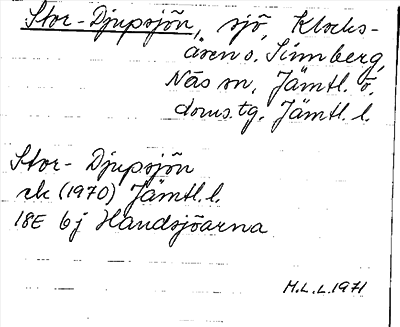 Stor-Djupsjön, sjö, Klocks-
åsen o. Sinnberg,
Näs sn, Jämtl. ö.
doms.tg, Jämtl. l.
Stor- Djupsjön
ek (1970) Jämtl. l.
18E 6j Handsjöarna
M.L.L. 1971